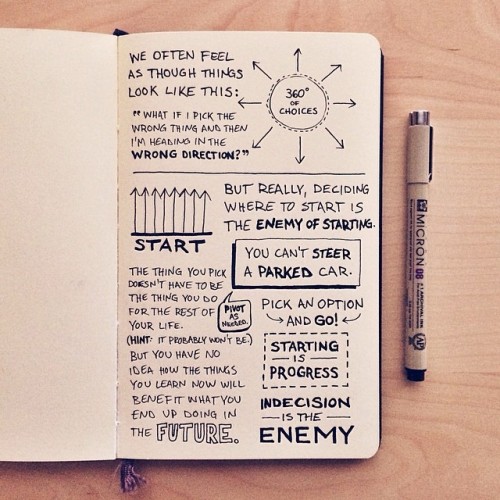 WE OFTEN FEEL
AS THOUGH THINGS
LOOK LIKE THIS:
360°
OF
CHOICES
"WHAT IF I PICK THE
WRONG THING AND THEN
I'M HEADING IN THE
WRONG DIRECTION?"
START
BUT REALLY, DECIDING
WHERE TO START IS
THE ENEMY OF STARTING.
YOU CAN'T STEER
A PARKED CAR.
THE THING YOU PICK
DOESN'T HAVE TO BE
THE THING YOU DO
FOR THE REST OF
YOUR LIFE.
PIVOT
AS
NEEDED.
(HINT: IT PROBABLY WON'T BE.)
BUT YOU HAVE NO
IDEA HOW THE THINGS
YOU LEARN NOW WILL
BENEFIT WHAT YOU
END UP DOING IN
THE FUTURE.
PICK AN OPTION
AND GO!
STARTING
IS
PROGRESS
INDECISION
IS THE
ENEMY
MICRON 08